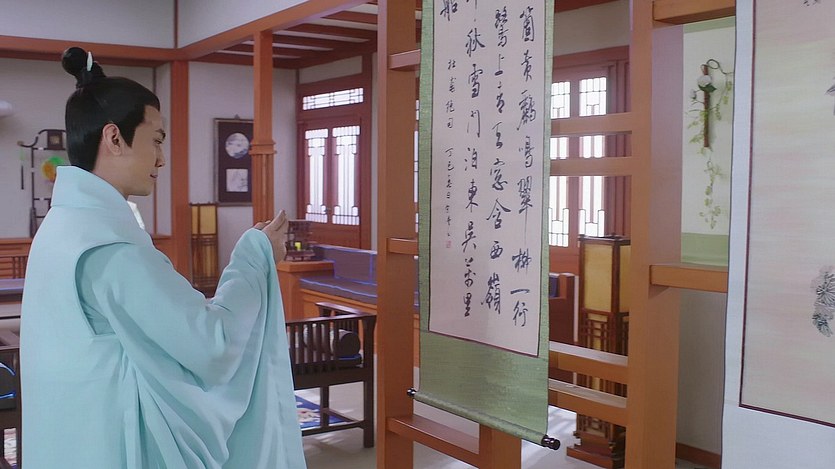 箇黄鸝鳴翠柳一行
鷺上青天窗含西嶺
秋雪门泊東吴萬里
船
杜甫絶句 丁巳